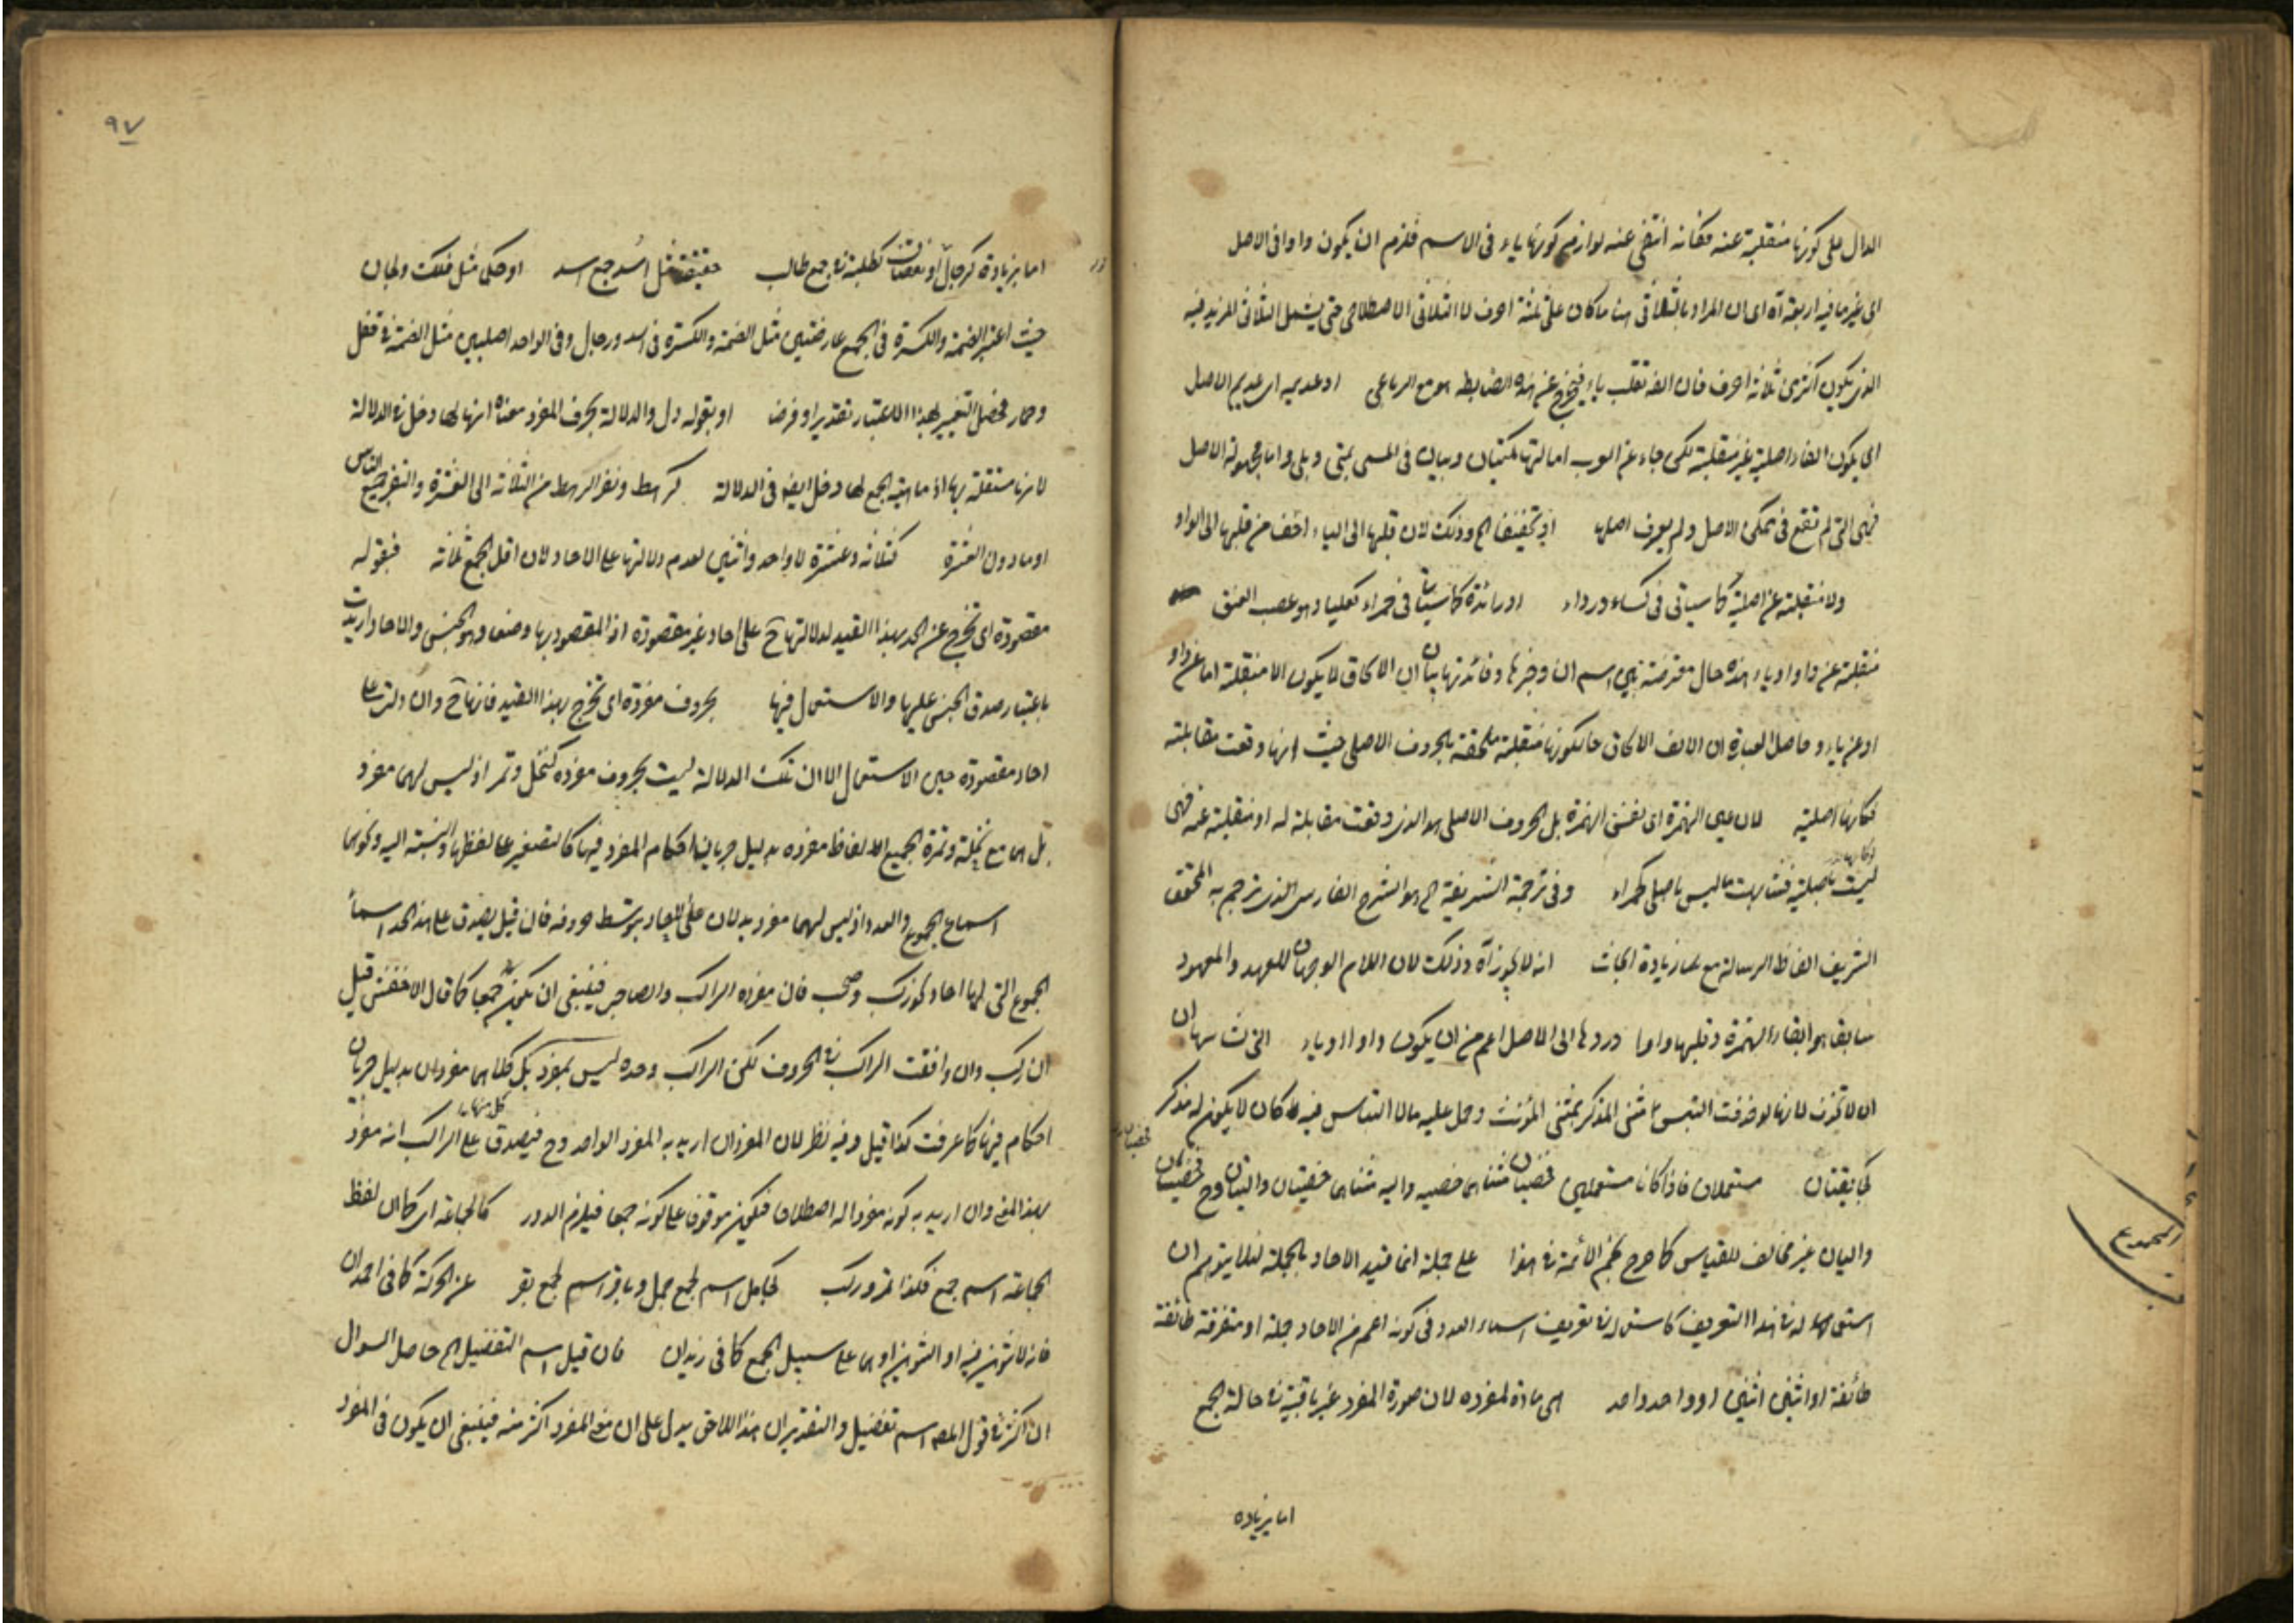 الدال على كونها منقلبة عنه فكانه انتفى عنه لوازم كونها ياء فى الاسم فلزم ان يكون واوا فى الاصل
اى غير ما فيه اربعة آه اى ان المراد بالثلاثى هنا ما كان على ثلثة احرف لا الثلاثى الاصطلاحى حتى يشمل الثلاثى المزيد فيه
الذى يكون اكثر من ثلاثة احرف فان الفه تقلب ياء فيخرج عن هذه الضابطه هو مع الرباعى او عديمه اى عديم الاصل
اى يكون الفا اصلية غير منقلبة لكن جاء عن العرب امالتها كمتيان وبليان فى المسمى بمتى وبلى واما مجهولة الاصل
فهى التى لم تقع فى متمكن الاصل ولم يعرف اصلها اى تخفيفا الخ وذلك لان قلبها الى الياء اخف من قلبها الى الواو
ولا منقلبة عن اصلية كما سياتى فى كساء ورداء او زائدة كما سيأتى فى حمراء كعلباء وهو عصب العنق
منقلبة عن واو او ياء هذه حال معترضة بين اسم ان وخبرها وفائدتها بيان ان الالحاق لا يكون الا منقلبة اما عن واو
او عن ياء وحاصل العبارة ان الالف الالحاق حال كونها منقلبة ملحقة بالحروف الاصلى حيث انها وقعت مقابلته
فكانها اصلية لان عين الهمزة اى نفس الهمزة بل الحروف الاصلى هو الذى وقعت مقابلة له او منقلبة عنه فهى
ليست باصلية فشابهت ما ليس باصلى كحمراء وفى ترجمة الشريفية الخ هو الشرح الفارسى الذى ترجم به المحقق
الشريف الفاظ الرسالة مع زيادة ابحاث انه لا يجوز آه وذلك لان اللام الوجهان للعهد والمعهود
سابقا هو ابقاء الهمزة وقلبها واوا وردها الى الاصل اعم من ان يكون واوا او ياء التى شانها ان
ان لا تحذف لانها لو حذفت التبس مثنى المذكر بمثنى المؤنث وحمل عليه ما لا التباس فيه كان لا يكون له مذكر
كبائقتان مستعملان فاذا كانا مستعملين خصيان مثناهما خصيه واليه مثناهما خصيتان واليتان وح خصيتان
واليان غير مخالف للقياس كما صرح نجم الائمة فى هذا على جملة انما قيد الاحاد بالجملة لئلا يتوهم ان
استعماله فى هذا التعريف كاستعماله فى تعريف اسماء العدد فى كونه اعم من الاحاد جملة او متفرقة طائفة
طائفة او اثنين اثنين او واحد واحد اى مادة لمفرده لان صورة المفرد غير باقية فى حالة الجمع
اما بزياده
٩٧
اما بزيادة كرجال او نقصان كطلبة فى جمع طالب حقيقة مثل اسد جمع اسد او حكى مثل فلك وهجان
حيث اعتبر الضمة والكسرة فى الجمع عارضتين مثل الضمة والكسرة فى اسد ورجال وفى الواحد اصليين مثل الضمة فى قفل
وحمار فحصل التغيير بهذا الاعتبار تقديرا وفرضا او بقوله دل والدلالة بحروف المفرد معناه انها لها دخل فى الدلالة
لا انها مستقلة بها اذ ماهية الجمع لها دخل ايضا فى الدلالة كرهط ونفر الرهط من الثلاثة الى العشرة والنفر جميع الناس
او ما دون العشرة كثلاثه وعشرة لا واحد واثنين لعدم دلالتها على الاحاد لان اقل الجمع ثلاثة فبقوله
مقصودة اى تخرج عن الحد بهذا القيد لدلالتها ح على احاد غير مقصودة اذ المقصود بها وضعا وهو الجنس والاحاد اريدت
باعتبار صدق الجنس عليها والاستعمال فيها بحروف مفردة اى تخرج بهذا القيد فانها ح وان دلت على
احاد مقصودة حين الاستعمال الا ان تلك الدلالة ليست بحروف مفرده كنخل وتمر اذ ليس لهما مفرد
بل هما مع نخلة وتمرة الجميع الالفاظ مفرده بدليل جريان احكام المفرد فيها كالتصغير على لفظها والنسبة اليه ونحوهما
اسماء الجموع والعدد اذ ليس لهما مفرد يدلان على الاحاد بتوسط حروفه فان قيل يصدق على هذا الحد اسماء
الجموع التى لها احاد نحو ركب وصحب فان مفرده الراكب والصاحب فينبغى ان يكون جمعا كما قال الاخفش قيل
ان ركب وان وافقت الراكب فى الحروف لكن الراكب وحده ليس بمفرد بل كلاهما مفردان بدليل جريان
احكام فيها كما عرفت كذا قيل وفيه نظر لان المفرد ان اريد به المفرد الواحد وح فيصدق على الراكب انه مفرد
بهذا المعنى وان اريد به كونه مفردا له اصطلاحا فيكون موقوفا على كونه جمعا فيلزم الدور كالجماعة اى كما ان لفظ
الجماعة اسم جمع فكذا تمر وركب كجامل اسم لجمع جمل وباقر اسم لجمع بقر عن الحركة كما فى احمدان
فانه لا تنوين فيه او التنوين او هما على سبيل الجمع كما فى زيدان فان قيل اسم التفضيل الخ حاصل السوال
ان اكثر فى قول المصـ اسم تفضيل والتقدير ان هذا اللاحق يدل على ان مع المفرد اكثر منه فينبغى ان يكون فى المفرد